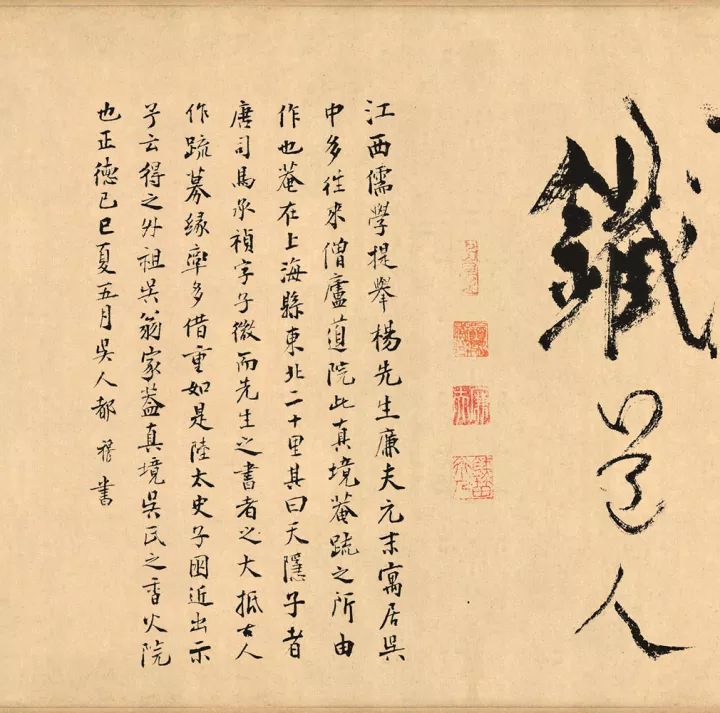 鐵道人
江西儒學提舉楊先生廉夫元末寓居吳
中多往來僧廬道院此真境菴疏之所由
作也菴在上海縣東北二十里其曰天隱子者
唐司馬承禎字子微而先生之書者之大抵古人
作疏募緣率多借重如是陸太史子囦近出示
予云得之外祖吳翁家蓋真境吳氏之香火院
也正德己巳夏五月吳人都穆書